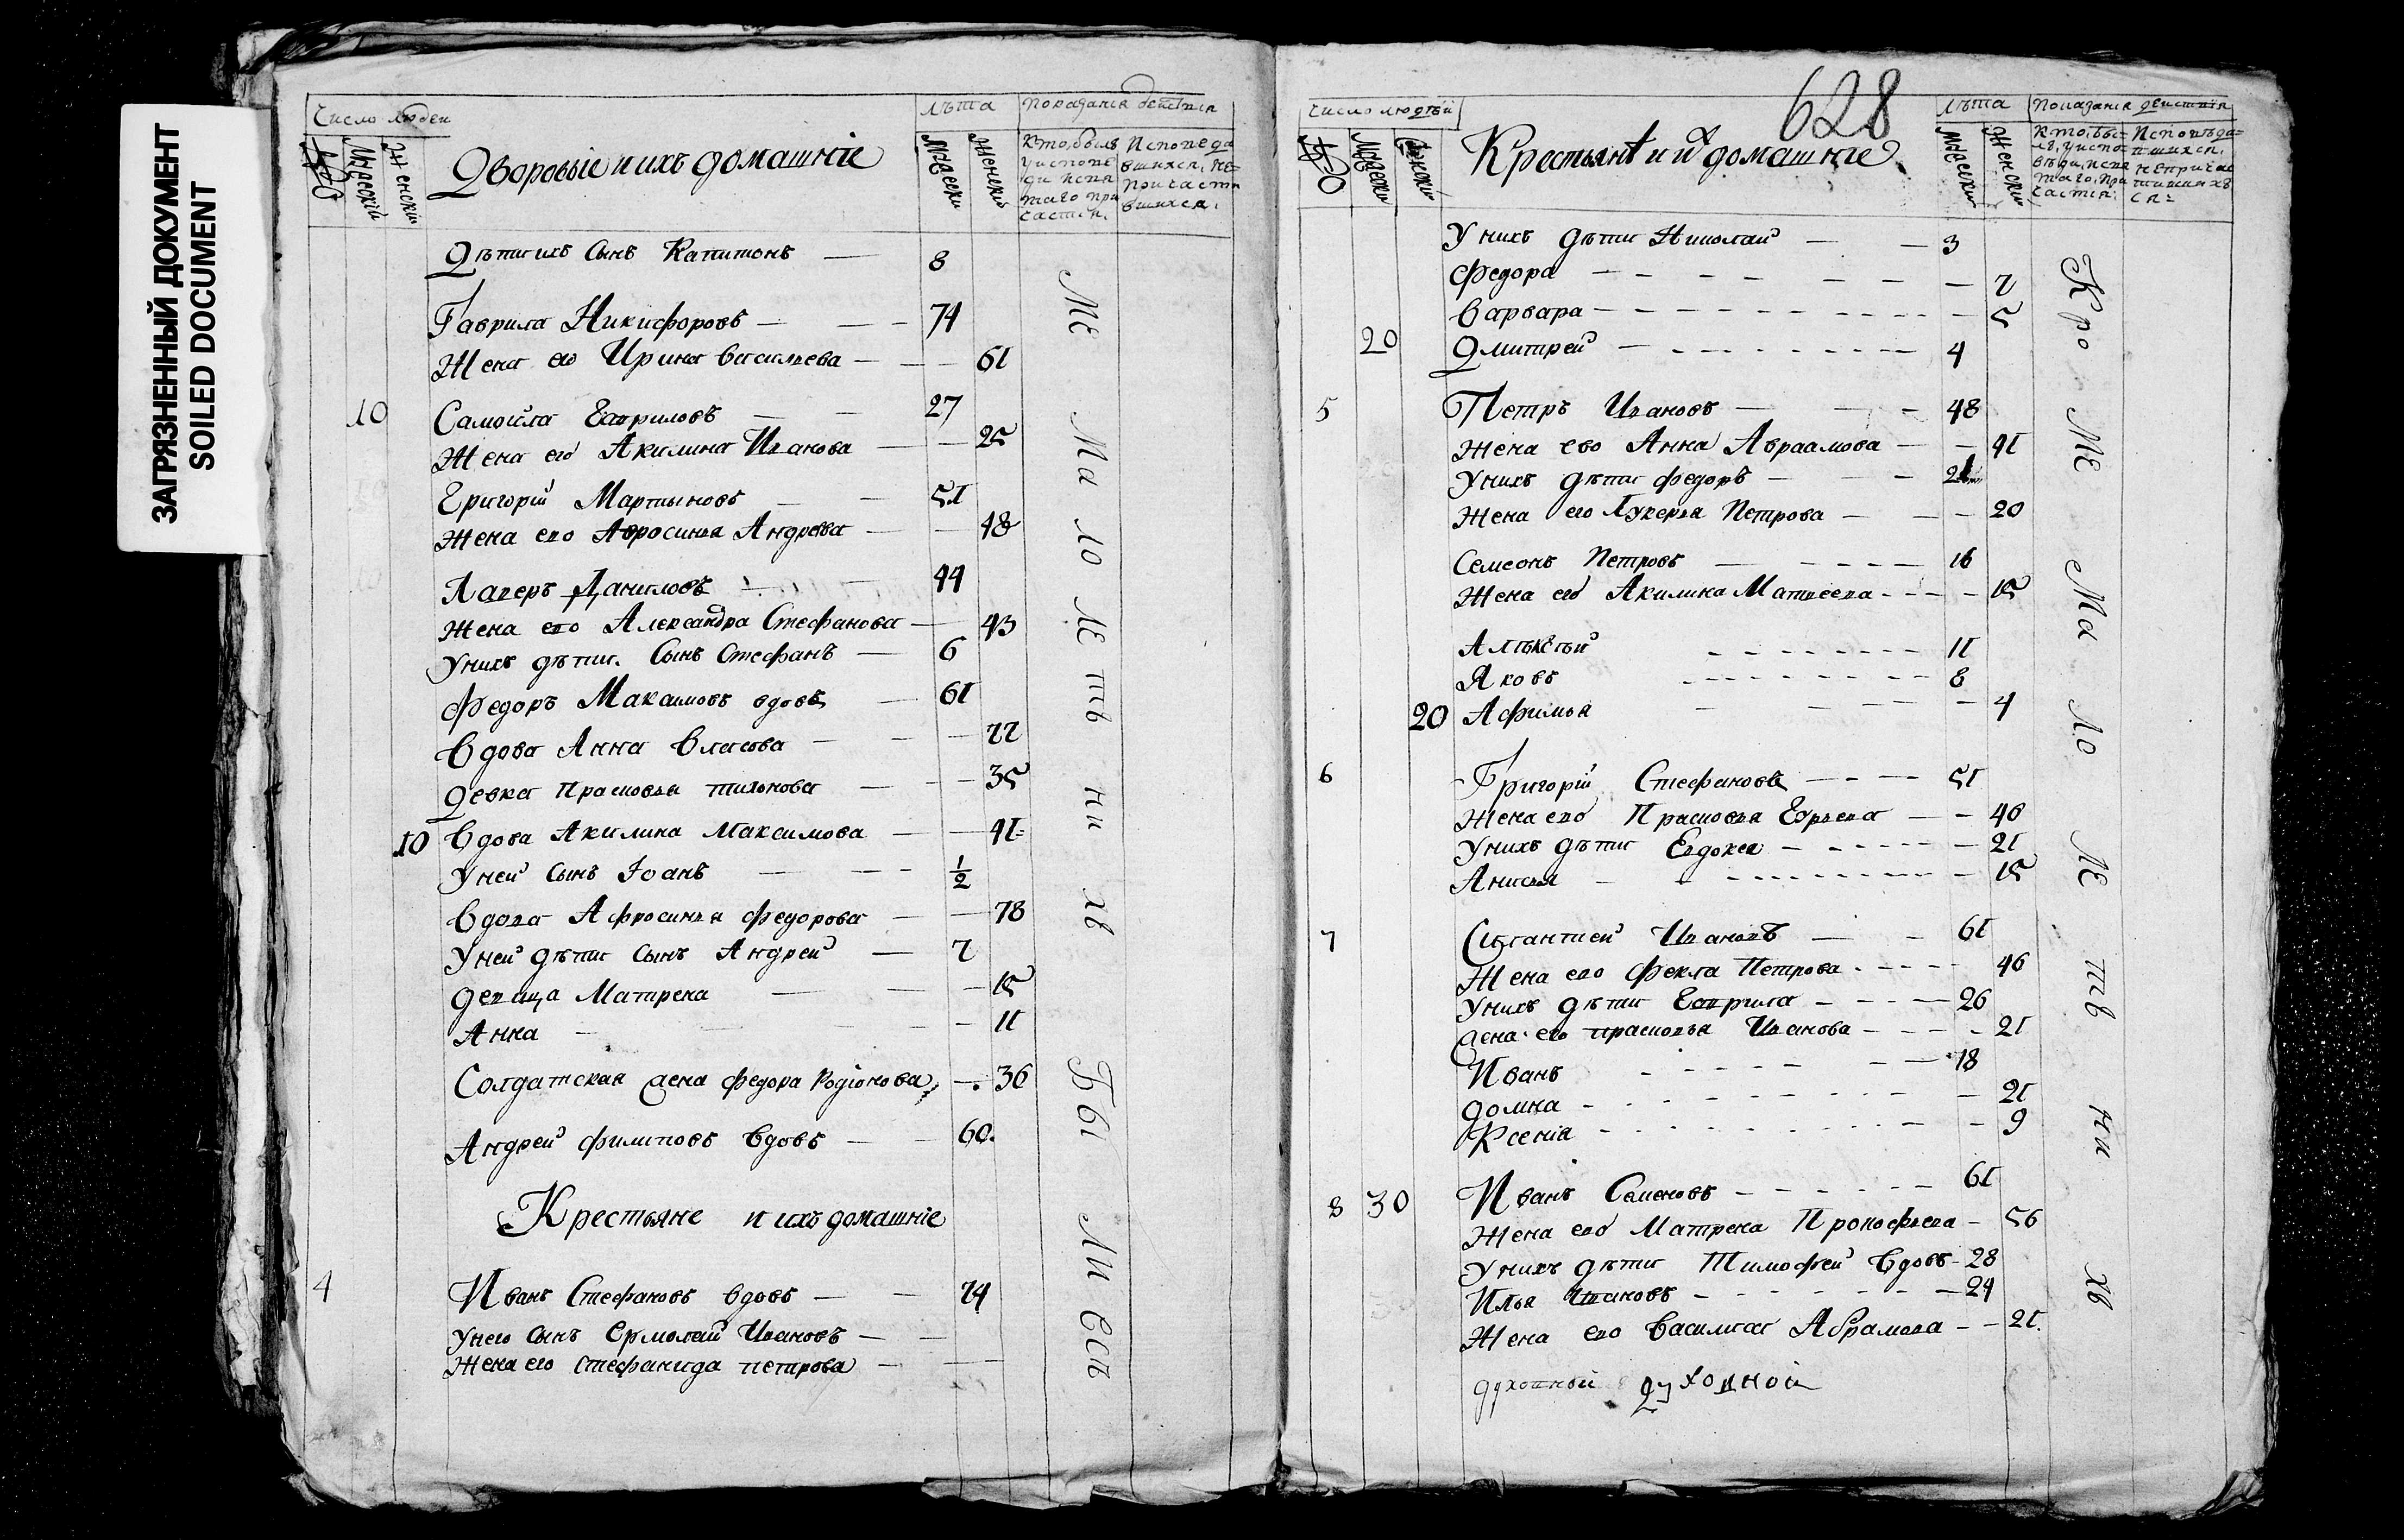 ЗАГРЯЗНЕННЫЙ ДОКУМЕНТ
SOILED DOCUMENT
Число людей
Мужескій
Женскій
Дворовыіе и ихъ домашніе
лѣта
Мужески
Женски
Показанія действія
Кто был у исповеди и святаго причастія.
Исповедавшихся, не причастившихся.
Дѣти ихъ сынъ Капитонъ — 8
Гаврила Никифоровъ — 74
Жена ево Ирина Васильева — 61
10 Самойла Гавриловъ — 27
Жена его Акилина Иванова — 25
Григорій Мартыновъ — 51
Жена ево Афросинья Андрева — 48
Лаверъ Даниловъ — 44
Жена ево Александра Стефанова — 43
У нихъ дѣти. Сынъ Стефанъ — 6
Федоръ Макаимовъ вдовъ — 61
Вдова Анна Власова — 77
Девка Прасковья Тихонова — 35
10 Вдова Акилина Максимова — 41
У ней сынъ Іоанъ — 1/2
Вдова Афросинья Федорова — 78
У ней дѣти сынъ Андрей — 7
девица Матрена — 15
Анна — 11
Солдатская жена Федора Родіонова — 36
Андрей Филиповъ вдовъ — 60.
Крестьяне и ихъ домашніе
4 Иванъ Стефановъ вдовъ — 74
У него сынъ Ермолай Ивановъ —
Жена его Стефанида Петрова —
Ма ло ле тъ ни хъ
Бы ли всѣ
628
Число людѣй
Мужески
Женски
Крестьянѣ и их домашніе
лѣта
Мужески
Женски
Показанія действія
Кто былъ у исповѣди, и святаго, причастія.
Исповѣдавшихся, непричастившихся
У нихъ дѣти Николай — 3
Федора — 7
Варвара — 5
20 Дмитрей — 4
5 Петръ Ивановъ — 48
Жена ево Анна Авраамова — 41
У нихъ дѣти Федоръ — 21
Жена его Лукерья Петрова — 20
Семеонъ Петровъ — 16
Жена его Акилина Матвеева — 15
Алѣксѣй — 11
Яковъ — 8
20 Афимья — 4
6 Григорій Стефановъ — 51
Жена ево Прасковья — 46
У нихъ дѣти Евдокея — 21
Анисья — 15
7 Ивановъ — 61
Жена ево Фекла Петрова — 46
У нихъ дѣти Гаврила — 26
жена его прасковья Иванова — 21
Иванъ — 18
Домна — 21
Ксенія — 9
8 30 Иванъ Семеновъ — 61
Жена ево Матрена Прокофьева — 56
У нихъ дѣти Тимофей Вдовъ — 28
Илья Ивановъ — 24
Жена ево Василиса Абрамова — 21.
духовный духовной
Кро ме
Ма ло ле тъ ни хъ